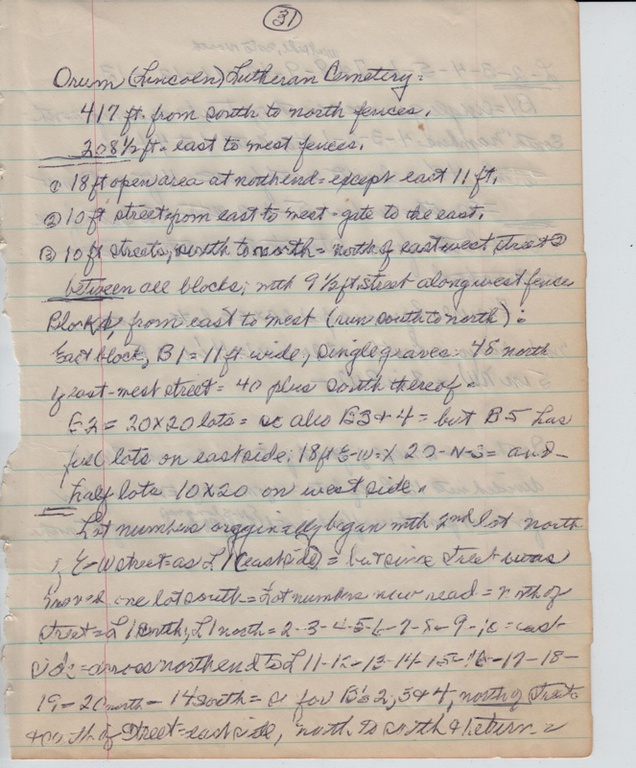 31
Orum (Lincoln) Lutheran Cemetery:
417 ft. from south to north fences.
208½ ft. east to west fences.
① 18 ft open area at north end = except east 11 ft.
② 10 ft street from east to west - gate to the east.
③ 10 ft streets, south to north = north of east west street ②
between all blocks; with 9½ ft. street along west fence
Blocks, from east to west (run south to north):
East block, B1 = 11 ft wide, single graves = 48 north
of east-west street = 40 plus south thereof.
B2 = 20x20 lots = so also B3 + 4 = but B5 has
full lots on east side: 18 ft E-W x 20 - N-S = and
half lots 10x20 on west side.
Lot numbers originally began with 2nd lot north
of E-W street as L1 (east side) = but since street was
moved one lot south = Lot numbers now read = north of
street = L1 south, L1 north = 2-3-4-5-6-7-8-9-10 = east
side = across north end to L 11-12-13-14-15-16-17-18-
19-20 north - 14 south = so for B's 2, 3 & 4, north of street
south of street = east side, north to south & return =